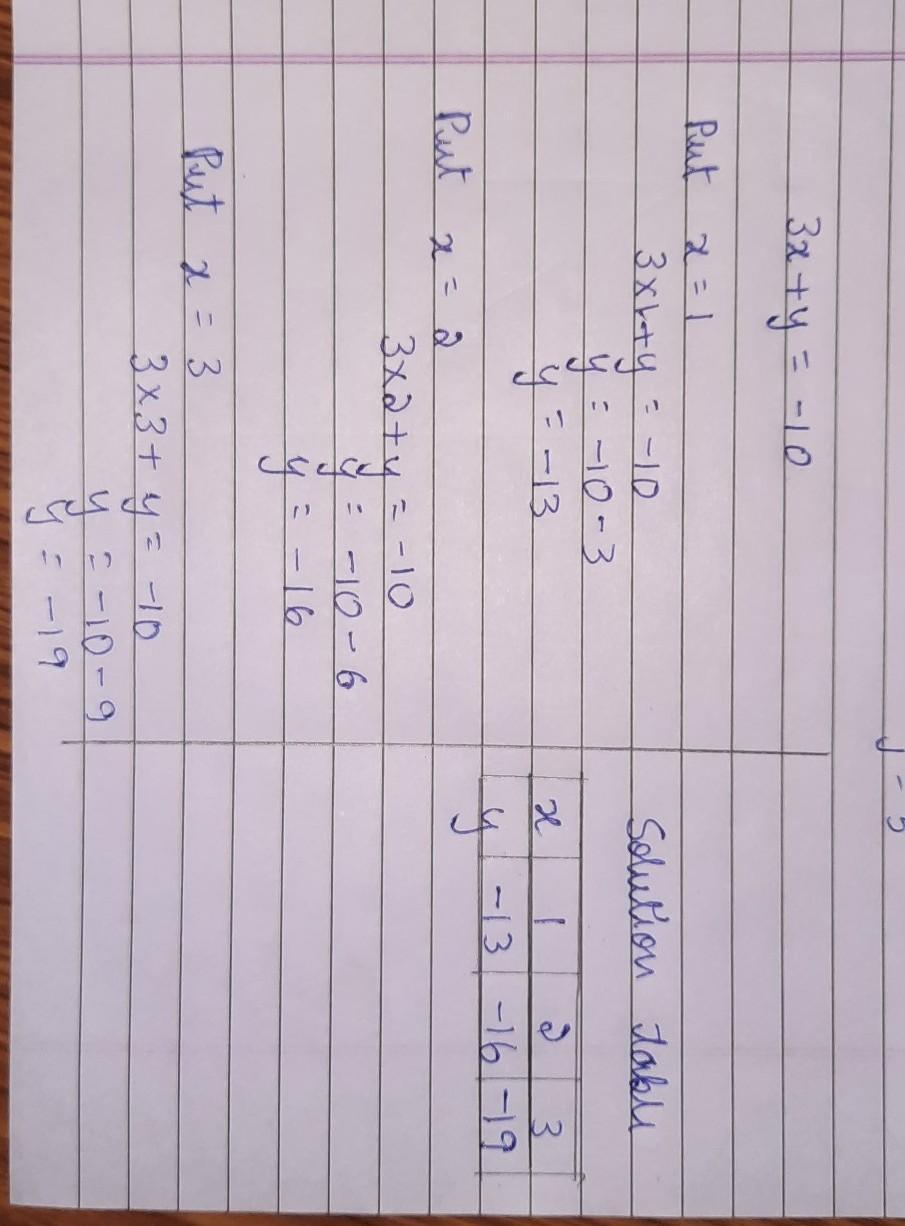 3x + y = -10
Put x = 1
3x1 + y = -10
y = -10 - 3
y = -13
Put x = 2
3 x 2 + y = -10
y = -10 - 6
y = -16
Put x = 3
3 x 3 + y = -10
y = -10 - 9
y = -19
Solution Table
x 1 2 3
y -13 -16 -19